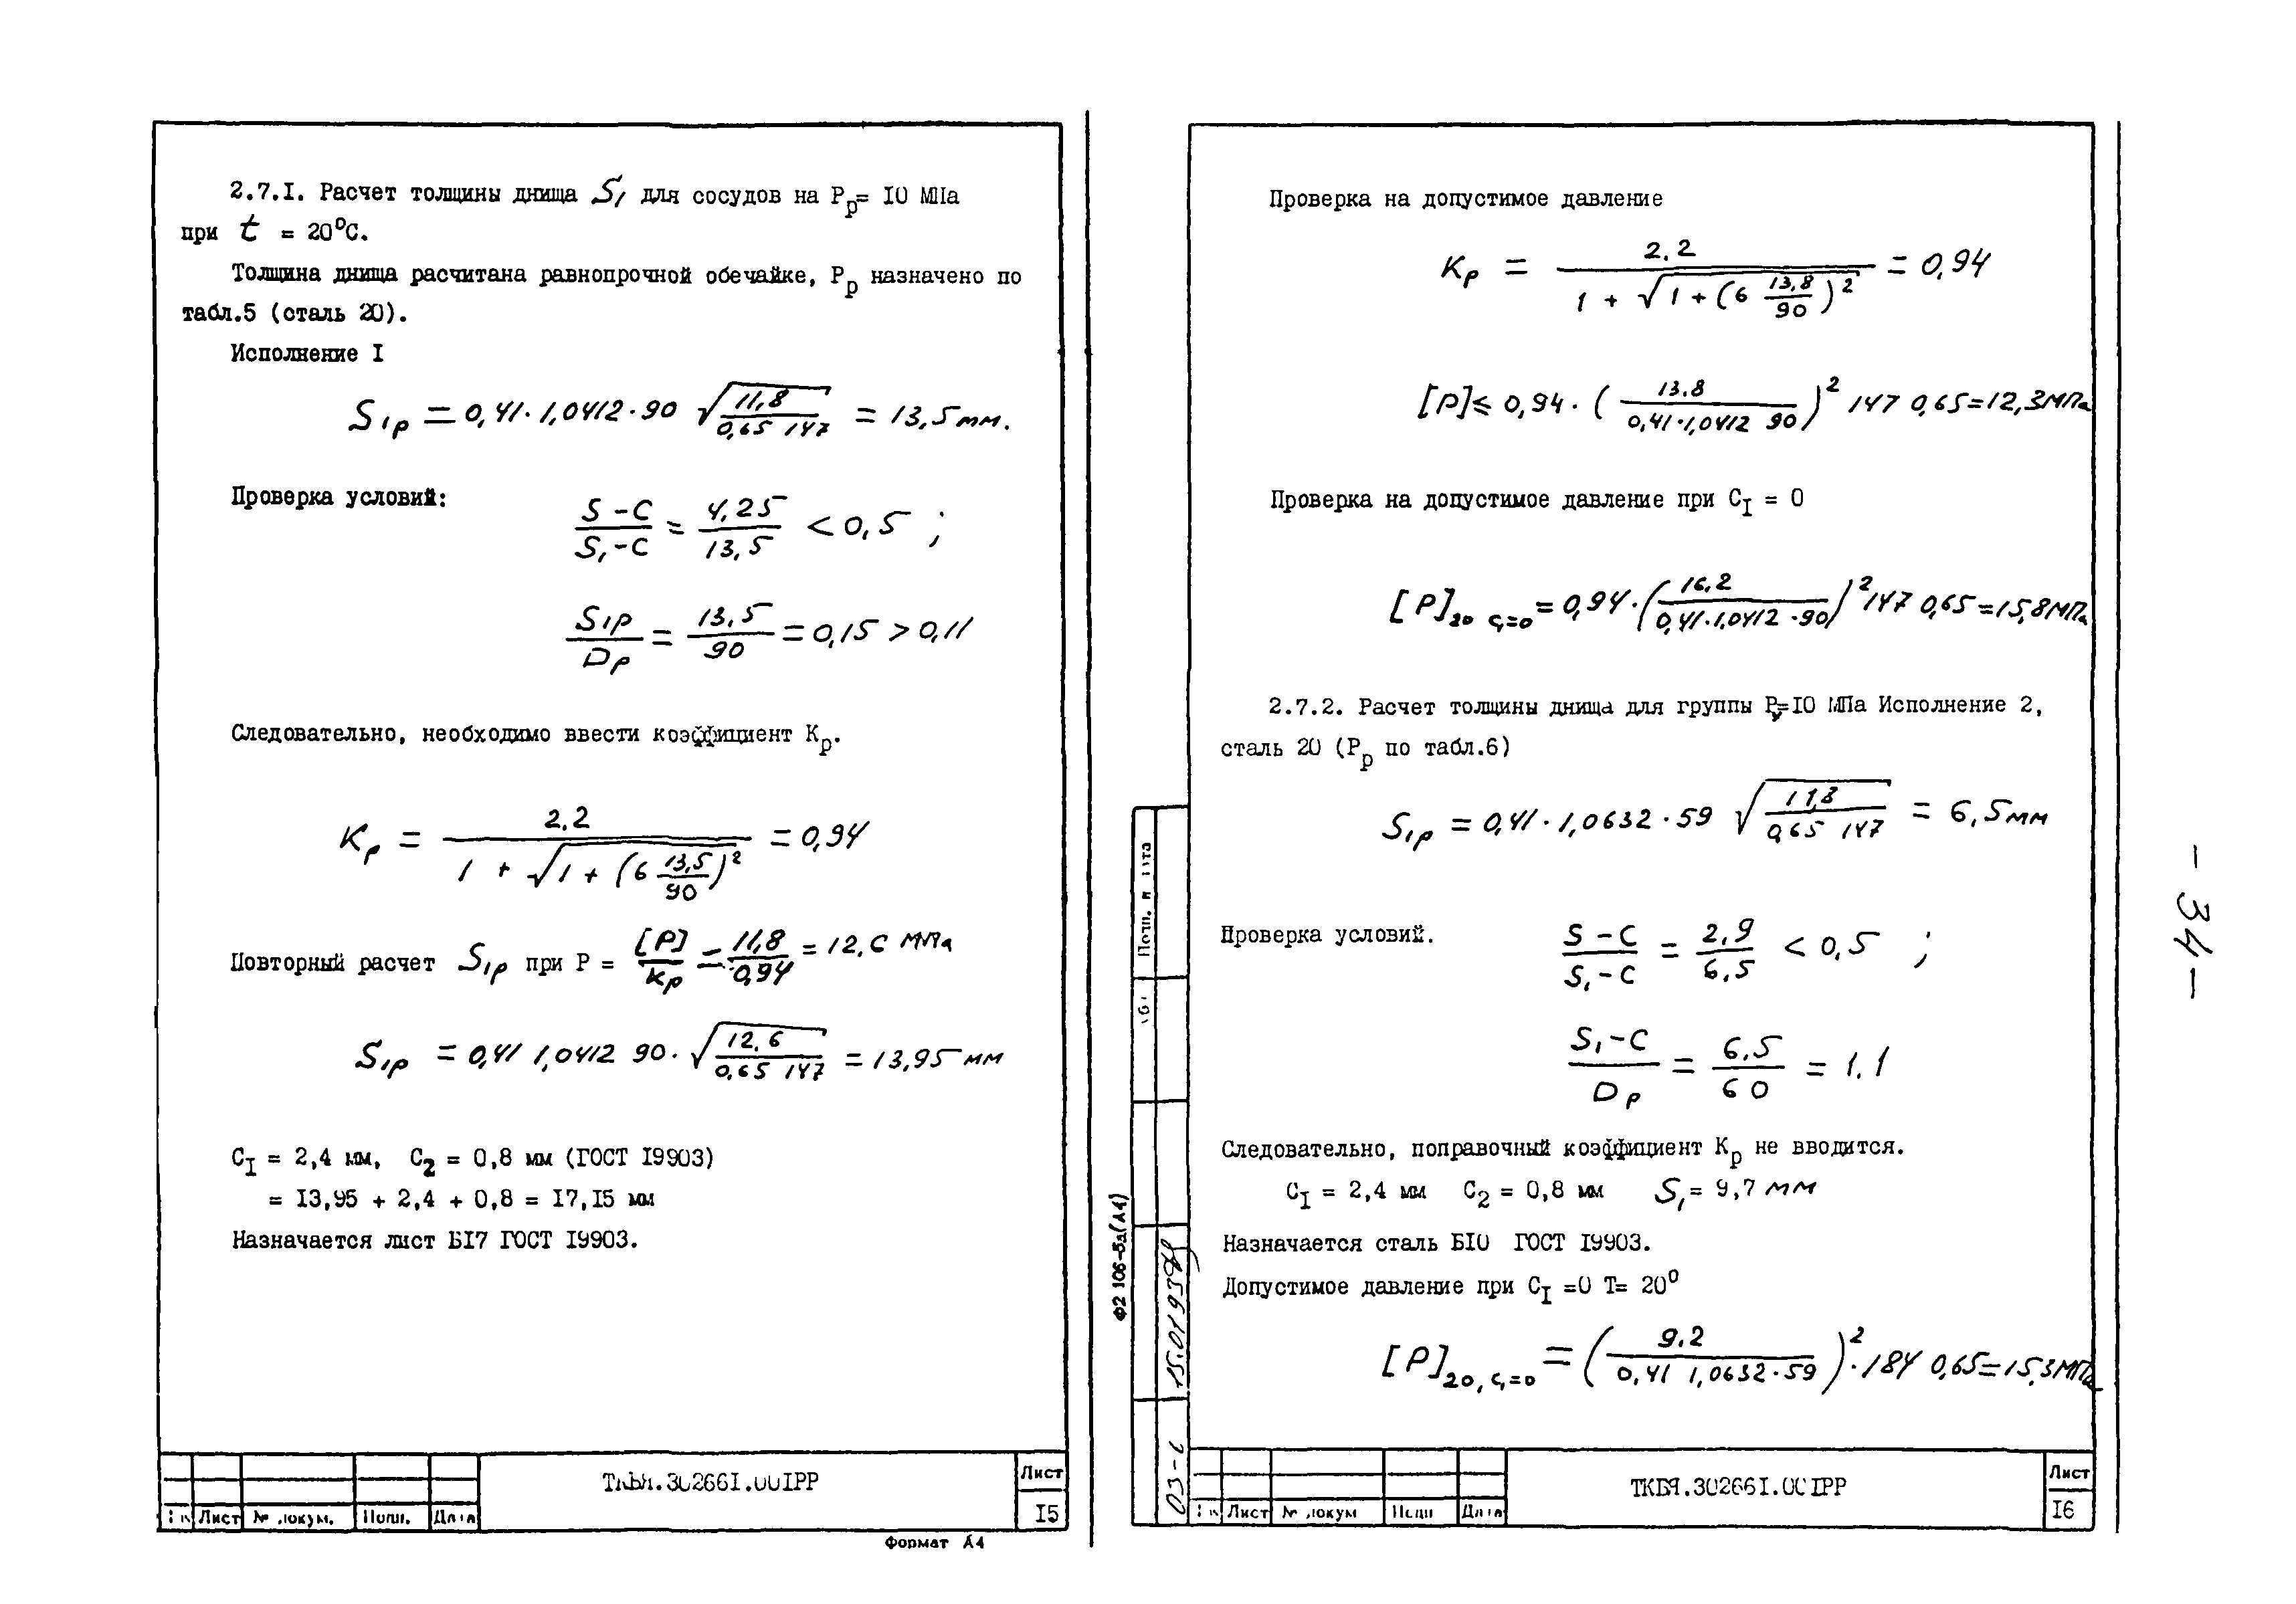 2.7.I. Расчет толщины днища S₁ для сосудов на Pp= IO МПа
при t = 20°С.
Толщина днища расчитана равнопрочной обечайке, Pp назначено по
табл.5 (сталь 20).
Исполнение I
S₁p = 0,41·1,0412·90 √(11,8 / 0,65 147) = 13,5мм.
Проверка условий:
S-C / S₁-C = 4,25 / 13,5 < 0,5 ;
S₁p / Dp = 13,5 / 90 = 0,15 > 0,11
Следовательно, необходимо ввести коэффициент Kp.
Kp = 2,2 / (1 + √(1 + (6 13,5/90)²)) = 0,94
Повторный расчет S₁p при P = [P] / Kp = 11,8 / 0,94 = 12,6 МПа
S₁p = 0,41 1,0412 90· √(12,6 / 0,65 147) = 13,95 мм
CI = 2,4 мм, C2 = 0,8 мм (ГОСТ I9903)
= I3,95 + 2,4 + 0,8 = I7,I5 мм
Назначается лист БI7 ГОСТ I9903.
ТКБЯ.30266I.00IРР
Лист
I5
Лист № докум. Подп. Дата
Формат А4
Проверка на допустимое давление
Kp = 2,2 / (1 + √(1 + (6 13,8/90)²)) = 0,94
[P] ≤ 0,94· (13,8 / 0,41·1,0412 90)² 147 0,65=12,3МПа
Проверка на допустимое давление при CI = 0
[P]20 C₁=0 = 0,94·(16,2 / 0,41·1,0412·90)² 147 0,65=15,8МПа
2.7.2. Расчет толщины днища для группы Pу=IO МПа Исполнение 2,
сталь 20 (Pp по табл.6)
S₁p = 0,41·1,0632·59 √(11,8 / 0,65 147) = 6,5мм
Проверка условий.
S-C / S₁-C = 2,9 / 6,5 < 0,5 ;
S₁-C / Dp = 6,5 / 60 = 1.1
Следовательно, поправочный коэффициент Kp не вводится.
CI = 2,4 мм C2 = 0,8 мм S₁= 9,7 мм
Назначается сталь БIO ГОСТ I9903.
Допустимое давление при CI =0 T= 20°
[P]20, C₁=0 = (9.2 / 0,41 1,0632·59)²·184 0,65=15,3МПа
Ф2 106-5а(А4)
Подп. и дата
15.01.93
03-1
ТКБЯ.30266I.00IРР
Лист
I6
Лист № докум Подп Дата
-34-